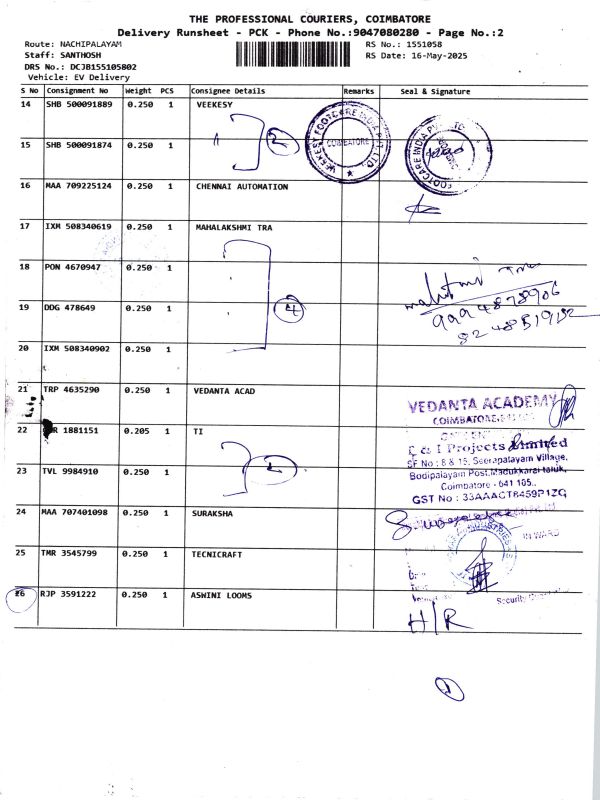 THE PROFESSIONAL COURIERS, COIMBATORE
Delivery Runsheet - PCK - Phone No.:9047080280 - Page No.:2
Route: NACHIPALAYAM
RS No.: 1551058
Staff: SANTHOSH
RS Date: 16-May-2025
DRS No.: DCJB155105802
Vehicle: EV Delivery
S No Consignment No Weight PCS Consignee Details Remarks Seal & Signature
14 SHB 500091889 0.250 1 VEEKESY
2
VEEKESY FOOTCARE INDIA PVT. LTD.
COIMBATORE
FOOTCARE INDIA PVT LTD
15 SHB 500091874 0.250 1
16 MAA 709225124 0.250 1 CHENNAI AUTOMATION
17 IXM 508340619 0.250 1 MAHALAKSHMI TRA
18 PON 4670947 0.250 1
19 DDG 478649 0.250 1
4
999 4878906
20 IXM 508340902 0.250 1
21 TRP 4635290 0.250 1 VEDANTA ACAD
VEDANTA ACADEMY
COIMBATORE
22 1881151 0.205 1 TI
I Projects Limited
SF No : 8 & 15, Seerapalayam Village,
Bodipalayam Post, Madukkarai taluk,
Coimbatore - 641 105.
GST No :
23 TVL 9984910 0.250 1
2
24 MAA 707401098 0.250 1 SURAKSHA
IN WARD
INDUSTRIES
25 TMR 3545799 0.250 1 TECNICRAFT
Security
26 RJP 3591222 0.250 1 ASWINI LOOMS
H/R
1